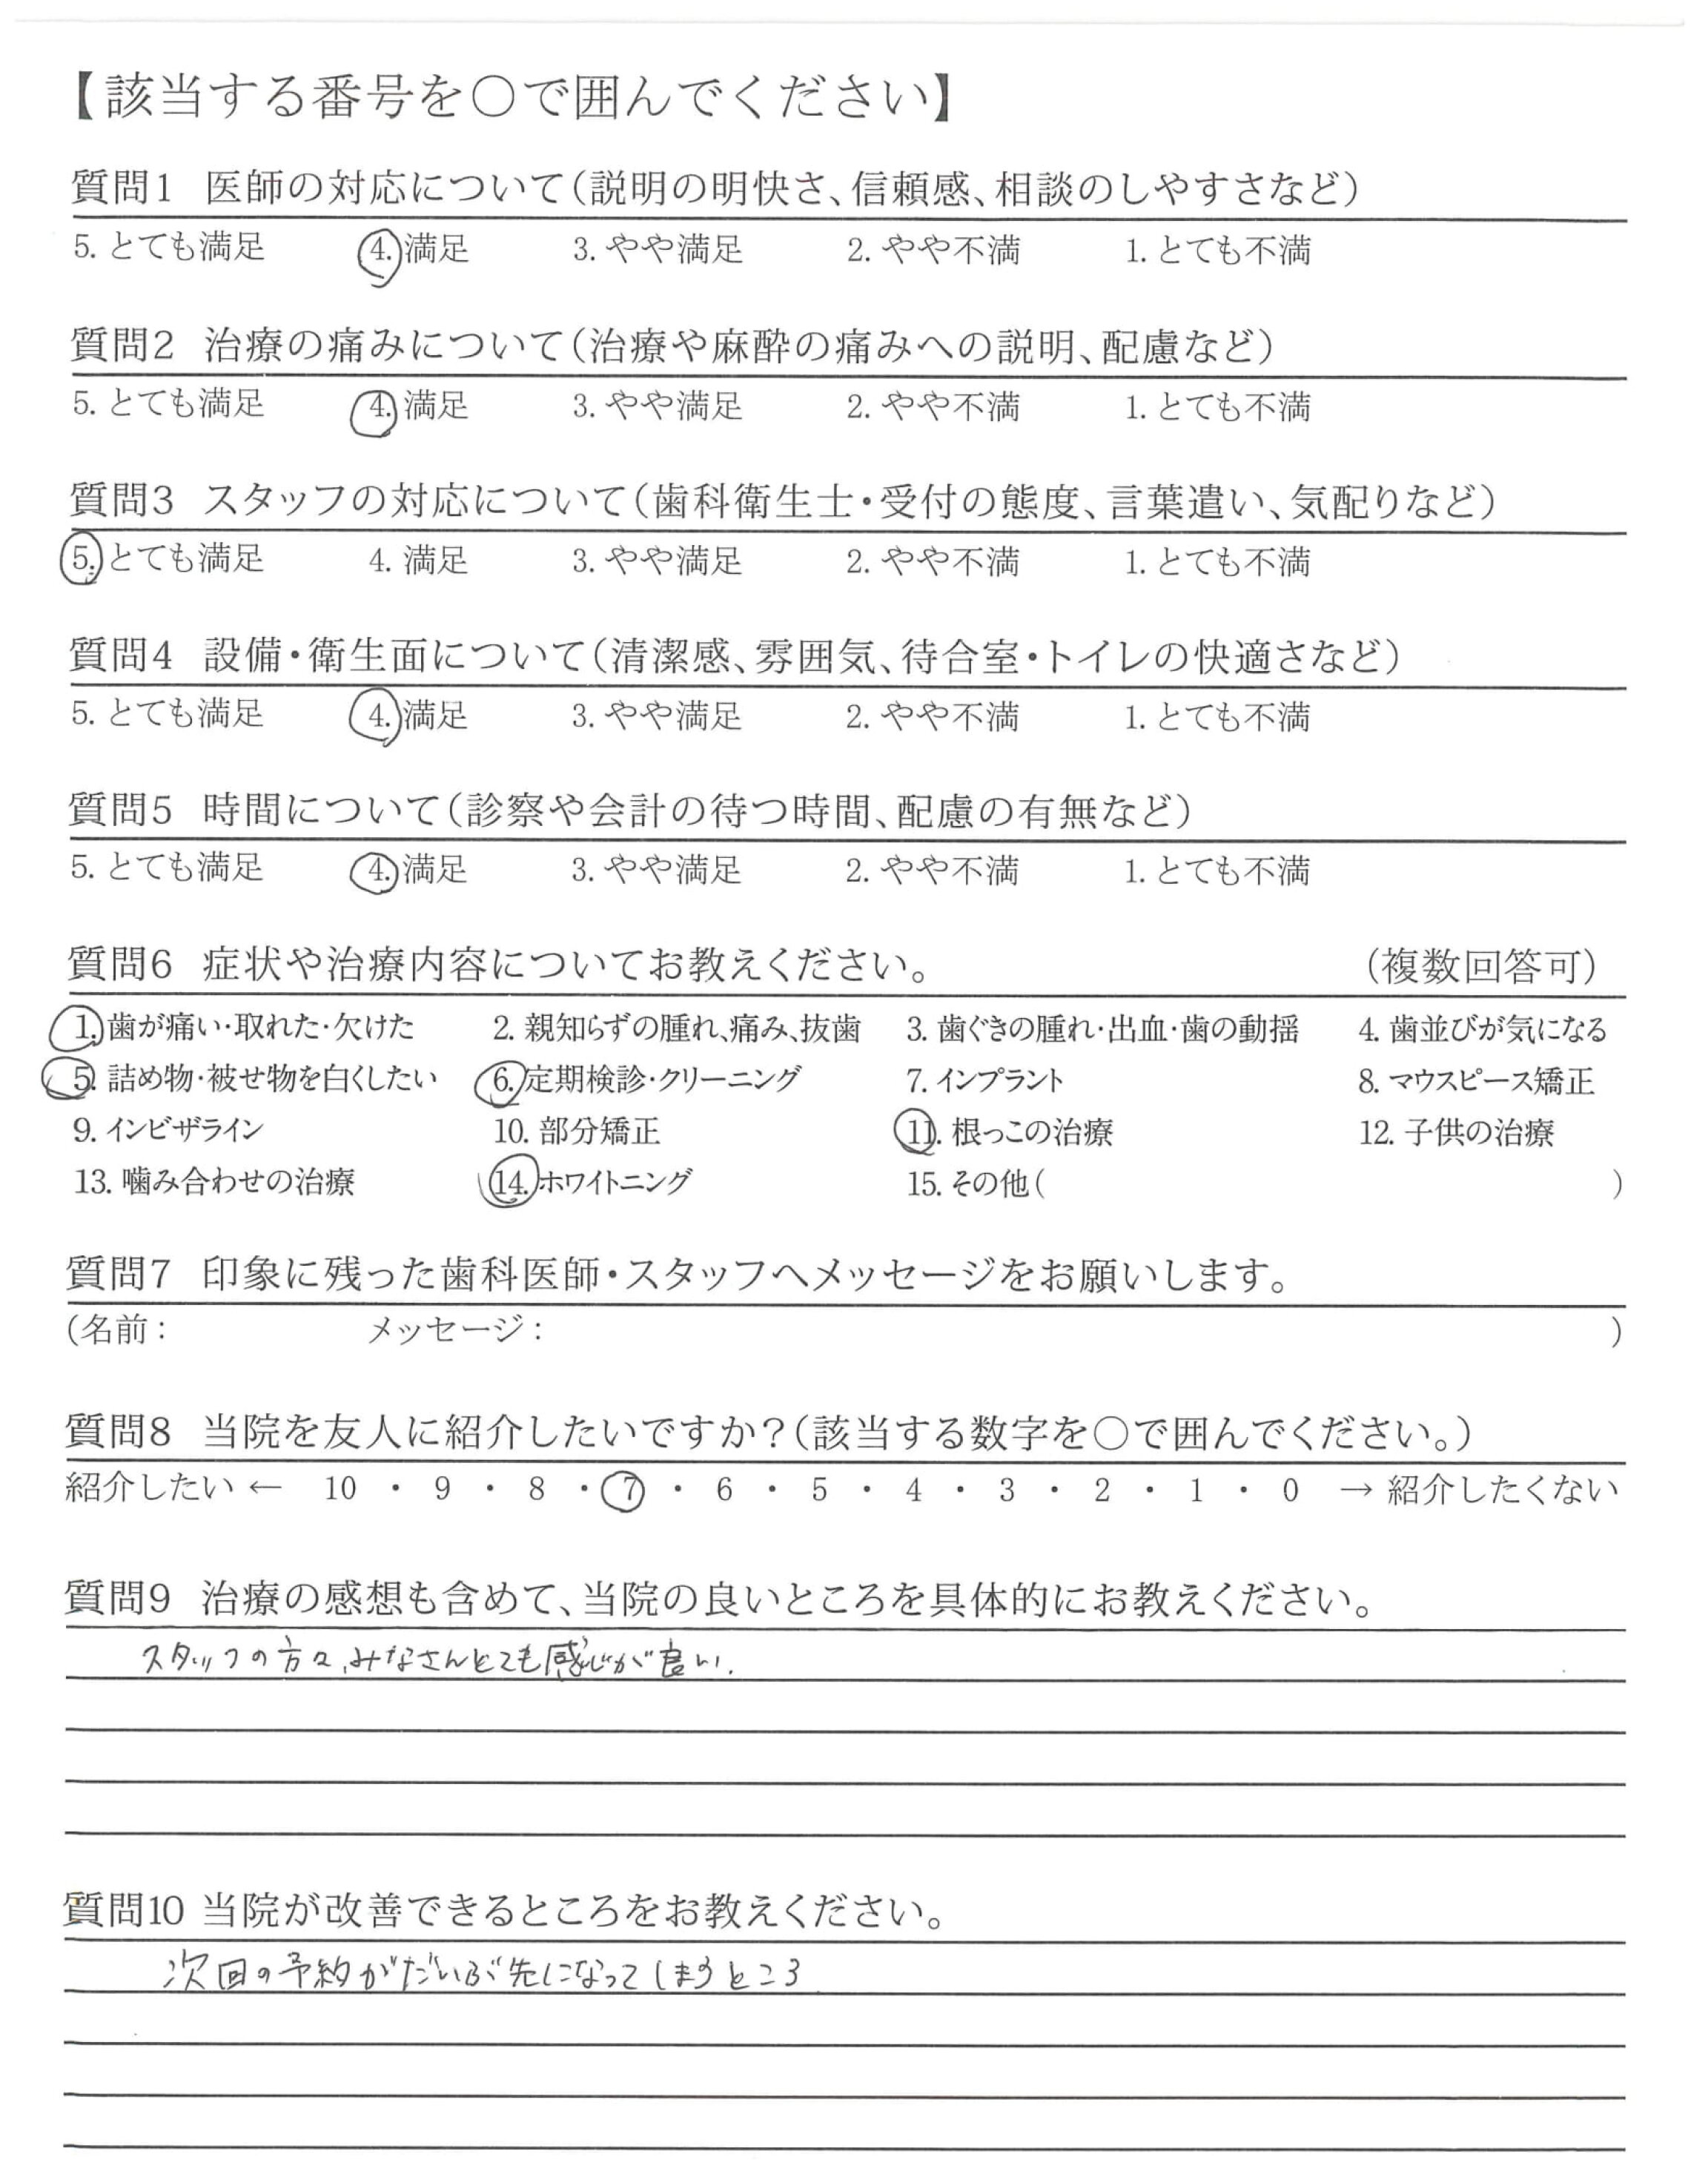 【該当する番号を○で囲んでください】
質問1 医師の対応について(説明の明快さ、信頼感、相談のしやすさなど)
5. とても満足 4. 満足 3. やや満足 2. やや不満 1. とても不満
質問2 治療の痛みについて(治療や麻酔の痛みへの説明、配慮など)
5. とても満足 4. 満足 3. やや満足 2. やや不満 1. とても不満
質問3 スタッフの対応について(歯科衛生士・受付の態度、言葉遣い、気配りなど)
5. とても満足 4. 満足 3. やや満足 2. やや不満 1. とても不満
質問4 設備・衛生面について(清潔感、雰囲気、待合室・トイレの快適さなど)
5. とても満足 4. 満足 3. やや満足 2. やや不満 1. とても不満
質問5 時間について(診察や会計の待つ時間、配慮の有無など)
5. とても満足 4. 満足 3. やや満足 2. やや不満 1. とても不満
質問6 症状や治療内容についてお教えください。 (複数回答可)
1. 歯が痛い・取れた・欠けた 2. 親知らずの腫れ、痛み、抜歯 3. 歯ぐきの腫れ・出血・歯の動揺 4. 歯並びが気になる
5. 詰め物・被せ物を白くしたい 6. 定期検診・クリーニング 7. インプラント 8. マウスピース矯正
9. インビザライン 10. 部分矯正 11. 根っこの治療 12. 子供の治療
13. 噛み合わせの治療 14. ホワイトニング 15. その他( )
質問7 印象に残った歯科医師・スタッフへメッセージをお願いします。
(名前: メッセージ: )
質問8 当院を友人に紹介したいですか?(該当する数字を○で囲んでください。)
紹介したい ← 10 ・ 9 ・ 8 ・ 7 ・ 6 ・ 5 ・ 4 ・ 3 ・ 2 ・ 1 ・ 0 → 紹介したくない
質問9 治療の感想も含めて、当院の良いところを具体的にお教えください。
スタッフの方々、みなさんとても感じが良い.
質問10 当院が改善できるところをお教えください。
次回の予約がだいぶ先になってしまうところ